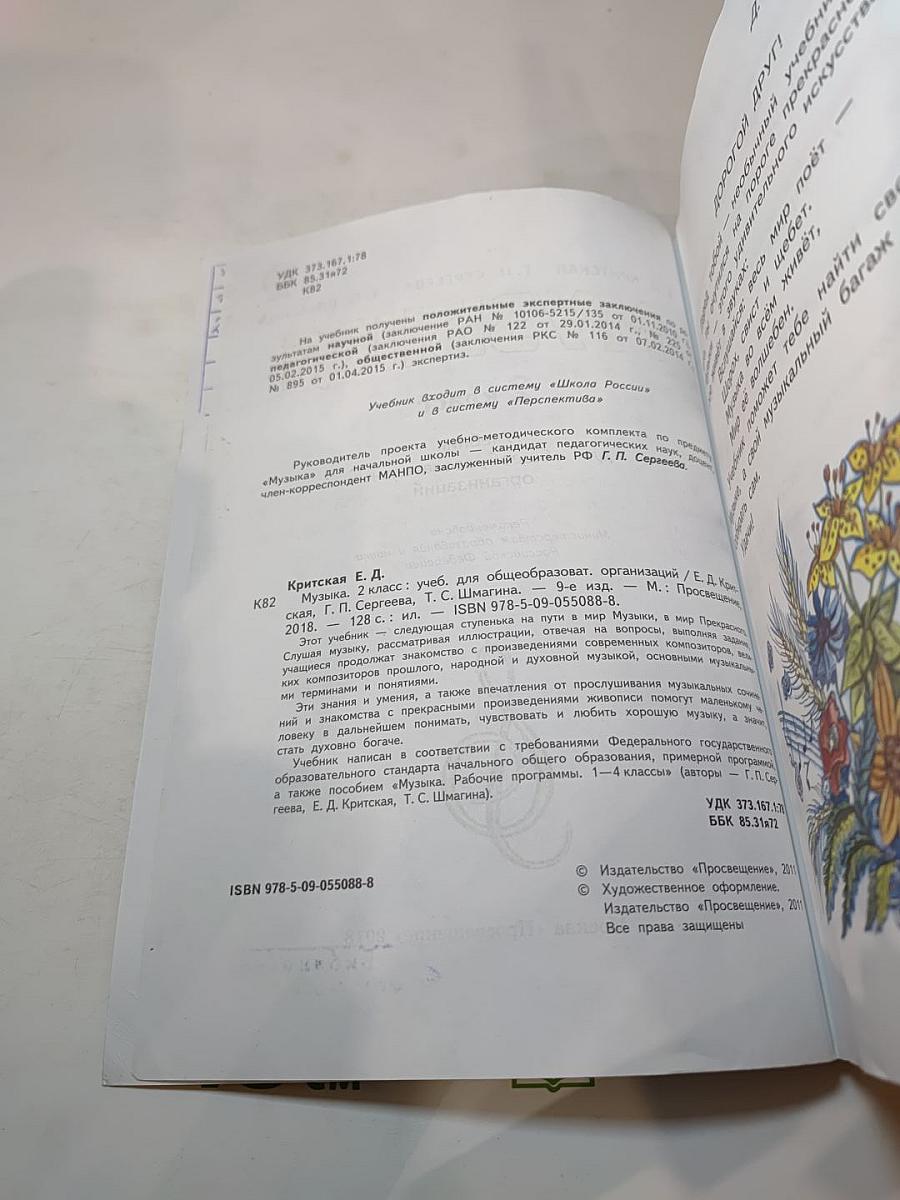 УДК 373.167.1:78
ББК 85.31я72
К82
На учебник получены положительные экспертные заключения по ре-
зультатам научной (заключение РАН № 10106-5215/135 от 01.11.2010 г.),
педагогической (заключения РАО № 122 от 29.01.2014 г., № 225 от
05.02.2015 г.), общественной (заключения РКС № 116 от 07.02.2014 г.,
№ 895 от 01.04.2015 г.) экспертиз.
Учебник входит в систему «Школа России»
и в систему «Перспектива»
Руководитель проекта учебно-методического комплекта по предмету
«Музыка» для начальной школы — кандидат педагогических наук, доцент,
член-корреспондент МАНПО, заслуженный учитель РФ Г. П. Сергеева.
Критская Е. Д.
К82 Музыка. 2 класс : учеб. для общеобразоват. организаций / Е. Д. Крит-
ская, Г. П. Сергеева, Т. С. Шмагина. — 9-е изд. — М. : Просвещение,
2018. — 128 с. : ил. — ISBN 978-5-09-055088-8.
Этот учебник — следующая ступенька на пути в мир Музыки, в мир Прекрасного.
Слушая музыку, рассматривая иллюстрации, отвечая на вопросы, выполняя задания,
учащиеся продолжат знакомство с произведениями современных композиторов, вели-
ких композиторов прошлого, народной и духовной музыкой, основными музыкальны-
ми терминами и понятиями.
Эти знания и умения, а также впечатления от прослушивания музыкальных сочине-
ний и знакомства с прекрасными произведениями живописи помогут маленькому че-
ловеку в дальнейшем понимать, чувствовать и любить хорошую музыку, а значит,
стать духовно богаче.
Учебник написан в соответствии с требованиями Федерального государственного
образовательного стандарта начального общего образования, примерной программой,
а также пособием «Музыка. Рабочие программы. 1—4 классы» (авторы — Г. П. Сер-
геева, Е. Д. Критская, Т. С. Шмагина).
УДК 373.167.1:78
ББК 85.31я72
ISBN 978-5-09-055088-8
© Издательство «Просвещение», 2011
© Художественное оформление.
Издательство «Просвещение», 2011
Все права защищены
ДОРОГОЙ ДРУГ!
необычный учебник
на пороге прекрасного
удивительного искусства
в звуках:
весь мир поёт —
Шорох, свист и щебет.
Музыка во всём живёт,
Мир её волшебен.
поможет тебе найти
свой музыкальный багаж